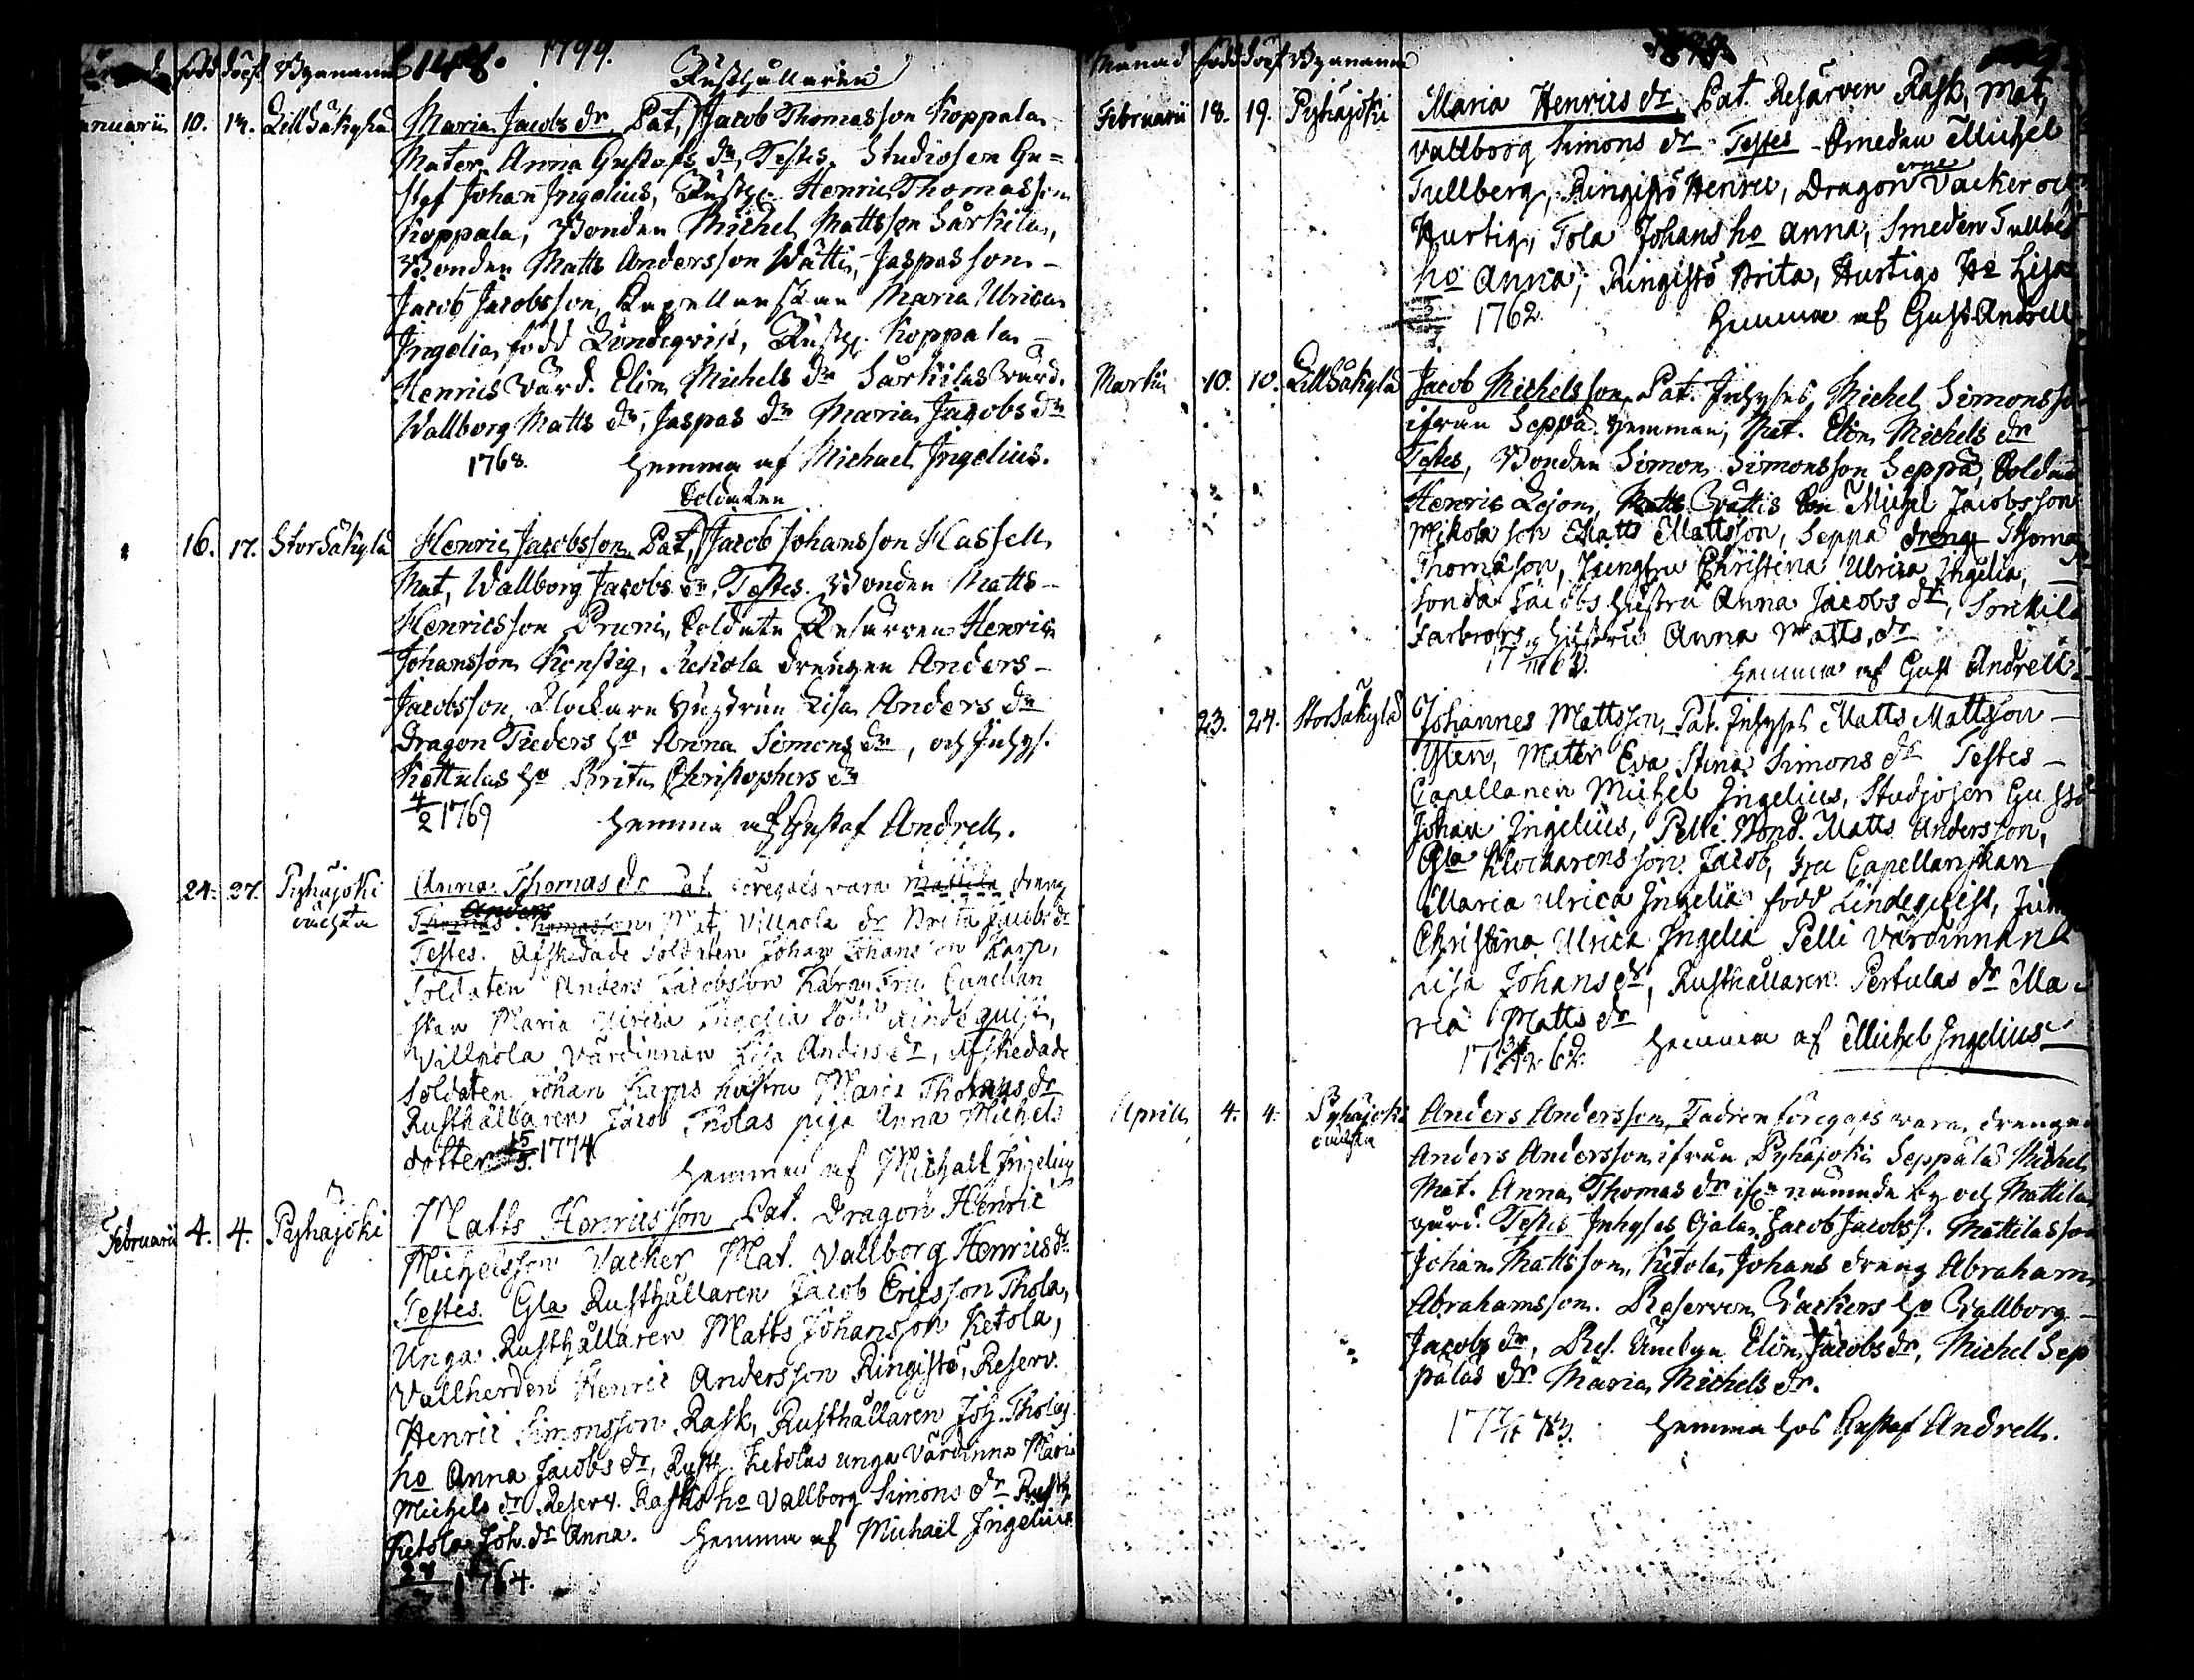 född döpt Bynamn 1799.
Januarii 10. 14. LillSäkylä Rusthållaren
Maria Jacobs dr Pat, Jacob Thomasson Koppala
Mater, Anna Gustafs dr, Testes, Studiosen Gu=
staf Johan Ingelius, Rusth. Henric Thomasson
Koppala, Bonden Michel Mattsson Särkilas,
Bonden Matts Andersson Wättis, Jaspas son
Jacob Jacobsson, Kapellanskan Maria Ulrica
Ingelia född Lindeqvist, Rusth. Koppalas
Henrics Värd. Elin Michels dr Särkilas värd.
Wallborg Matts dr, Jaspas dr Maria Jacobs dr
1768. hemma af Michael Ingelius.
Soldaten
16. 17. StorSäkylä Henric Jacobsson Pat, Jacob Johansson Hassell,
Mat, Wallborg Jacobs dr, Testes. Bonden Matts
Henricsson Pruni, Soldate Reserven Henric
Johansson Konstig, Ketola drengen Anders
Jacobsson, Klockare hustrun Lisa Anders dr
Dragon Tieders ho Anna Simons dr, och Inhys.
Kottulas ho Brita Christophers dr
4/2 1769 hemma af Gustaf Andrell.
24. 27. Pyhäjoki
oächta
Anna Thomas dr Pat föregafs vara Mattila dreng
Anders
Thomas Thomasson, Mat, Villnola dr Brita Jacobs dr
Testes. Afskedade Soldaten Johan Johansson Karp,
Soldaten Anders Jacobsson Karn, Fru Capellan
skan Maria Ulrica Ingelia född Lindequist,
Villnola Värdinnan Lisa Anders dr, Afskedade
Soldaten Johan Karps hustru Maria Thomas dr
Rusthållaren Jacob Tholas piga Anna Michels
dotter 15/5 1774 hemma af Michael Ingelius
Februarii 4. 4. Pyhäjoki Matts Henricsson Pat. Dragon Henric
Michelsson Vacker Mat. Vallborg Henrics dr
Testes. Gla Rusthållaren Jacob Ericsson Thola,
Unga Rusthållaren Matts Johansson Ketola,
Vallherden Henric Andersson Ringistö, Reserv.
Henric Simonsson Rask, Rusthållaren Joh. Tholas
ho Anna Jacobs dr, Rusth. Ketolas unga Värdinna Maria
Michels dr Reserv. Rasks ho Vallborg Simons dr Rusth.
Ketola Joh. dr Anna. hemma af Michaël Ingelius
28 1764.
Månad född döpt Bynamn
Februarii 18. 19. Pyhäjoki Maria Henrics dr, Pat. Reserven Rask, Mat,
Vallborg Simons dr Testes Smeden Michel
Tullberg, Ringistö Henric, Dragonerne Vacker och
Hurtig, Tola Johans ho Anna, Smeden Tullberg
ho Anna, Ringistö Brita, Hurtigs Ho Lisa
1762. hemma af Gust Andrell
Martii 10. 10. LillSäkylä Jacob Michelsson, Pat. Inhyses Michel Simonsson
ifrån Seppä hemman, Mat. Elin Michels dr
Testes, Bonden Simon Simonsson Seppä, Soldat
Henric Lejon, Matts Wättis son Michel Jacobsson
Mikola son Matts Mattsson, Seppä dreng Thomas
Thomasson, Jungfru Christina Ulrica Ingelia,
Sonda Jacobs hustru Anna Jacobs dr, Särkilä
farbrors hustru Anna Matts dr
hemma af Gust Andrell.
23. 24. StorSäkylä Johannes Mattsson, Pat. Inhyses Matts Mattsson
Mater Eva Stina Simons dr Testes
Capellanen Michel Ingelius, Studiosen Gustaf
Johan Ingelius, Pelli Bond. Matts Andersson,
Gla Klockarens son Jacob, Fru Capellanskan
Maria Ulrica Ingelia född Lindequist, Jungf.
Christina Ulrica Ingelia Pelli Värdinnan
Lisa Johans dr, Rusthållaren Pertulas dr Ma-
ria Matts dr
hemma af Michel Ingelius
Aprill 4. 4. Pyhäjoki
oächta
Anders Andersson, Fadren föregafs vara drengen
Anders Andersson ifrån Pyhäjoki Seppälä Michels
Mat. Anna Thomas dr ifrån nämnde by och Mattilas
gård. Testes Inhyses Ojala, Jacob Jacobss. Mattilas son
Johan Mattsson, Ketolas Johans dreng Abraham
Abrahamsson. Reserven Vackers ho Vallborg
Jacobs dr, Elin Jacobs dr, Michel Sep
pälas dr Maria Michels dr.
hemma hos Gustaf Andrell.